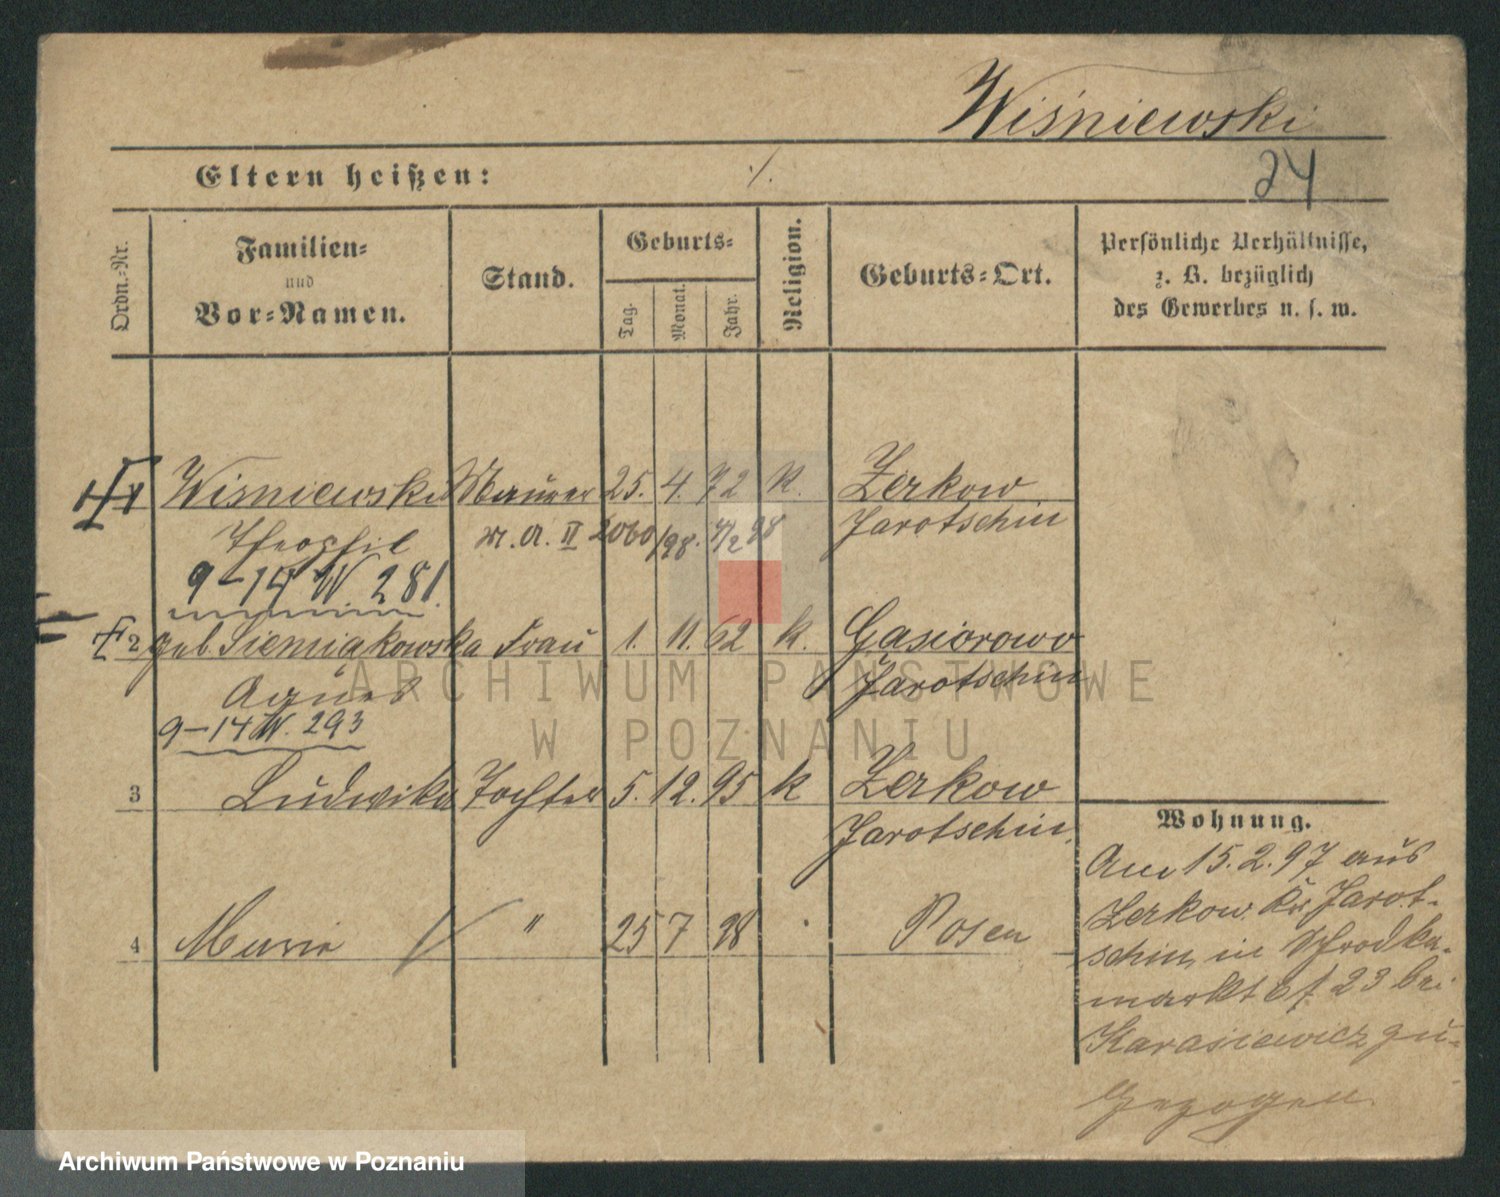 Wiśniewski
Eltern heißen: ./.
24
Ordn.-Nr.
Familien-
und
Vor-Namen.
Stand.
Geburts-
Tag.
Monat.
Jahr.
Religion.
Geburts-Ort.
Persönliche Verhältnisse,
z. B. bezüglich
des Gewerbes u. s. w.
1 Wiśniewski Maurer 25. 4. 72 K. Zerkow
Theophil M. A. II 2060/98. 7/2 98 Jarotschin
9-14 W 281.
2 geb. Siemiąkowska Frau 1. 11. 62 k. Gąsiorowo
Agnes Jarotschin
9-14 W. 293
3 Ludwika Tochter 5. 12. 95 k Zerkow
Jarotschin.
4 Marie " 25 7 98 Posen
Wohnung.
Am 15.2.97 aus
Zerkow Kr. Jarot-
schin in Schrodka-
markt 23 bei
Karasiewicz zu-
gezogen.
ARCHIWUM PAŃSTWOWE
W POZNANIU
Archiwum Państwowe w Poznaniu